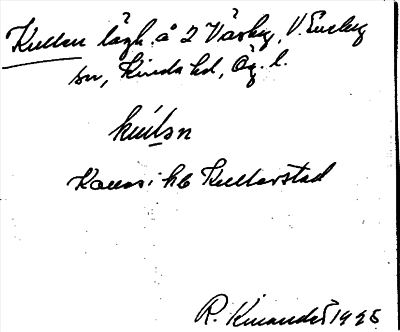 Kullen lägh. å 2 Väsby, V. Eneby
sn, Kinda hd, Ög. l.
kúlsn
Kallas i kb Kullerstad
R. Kinander 1925